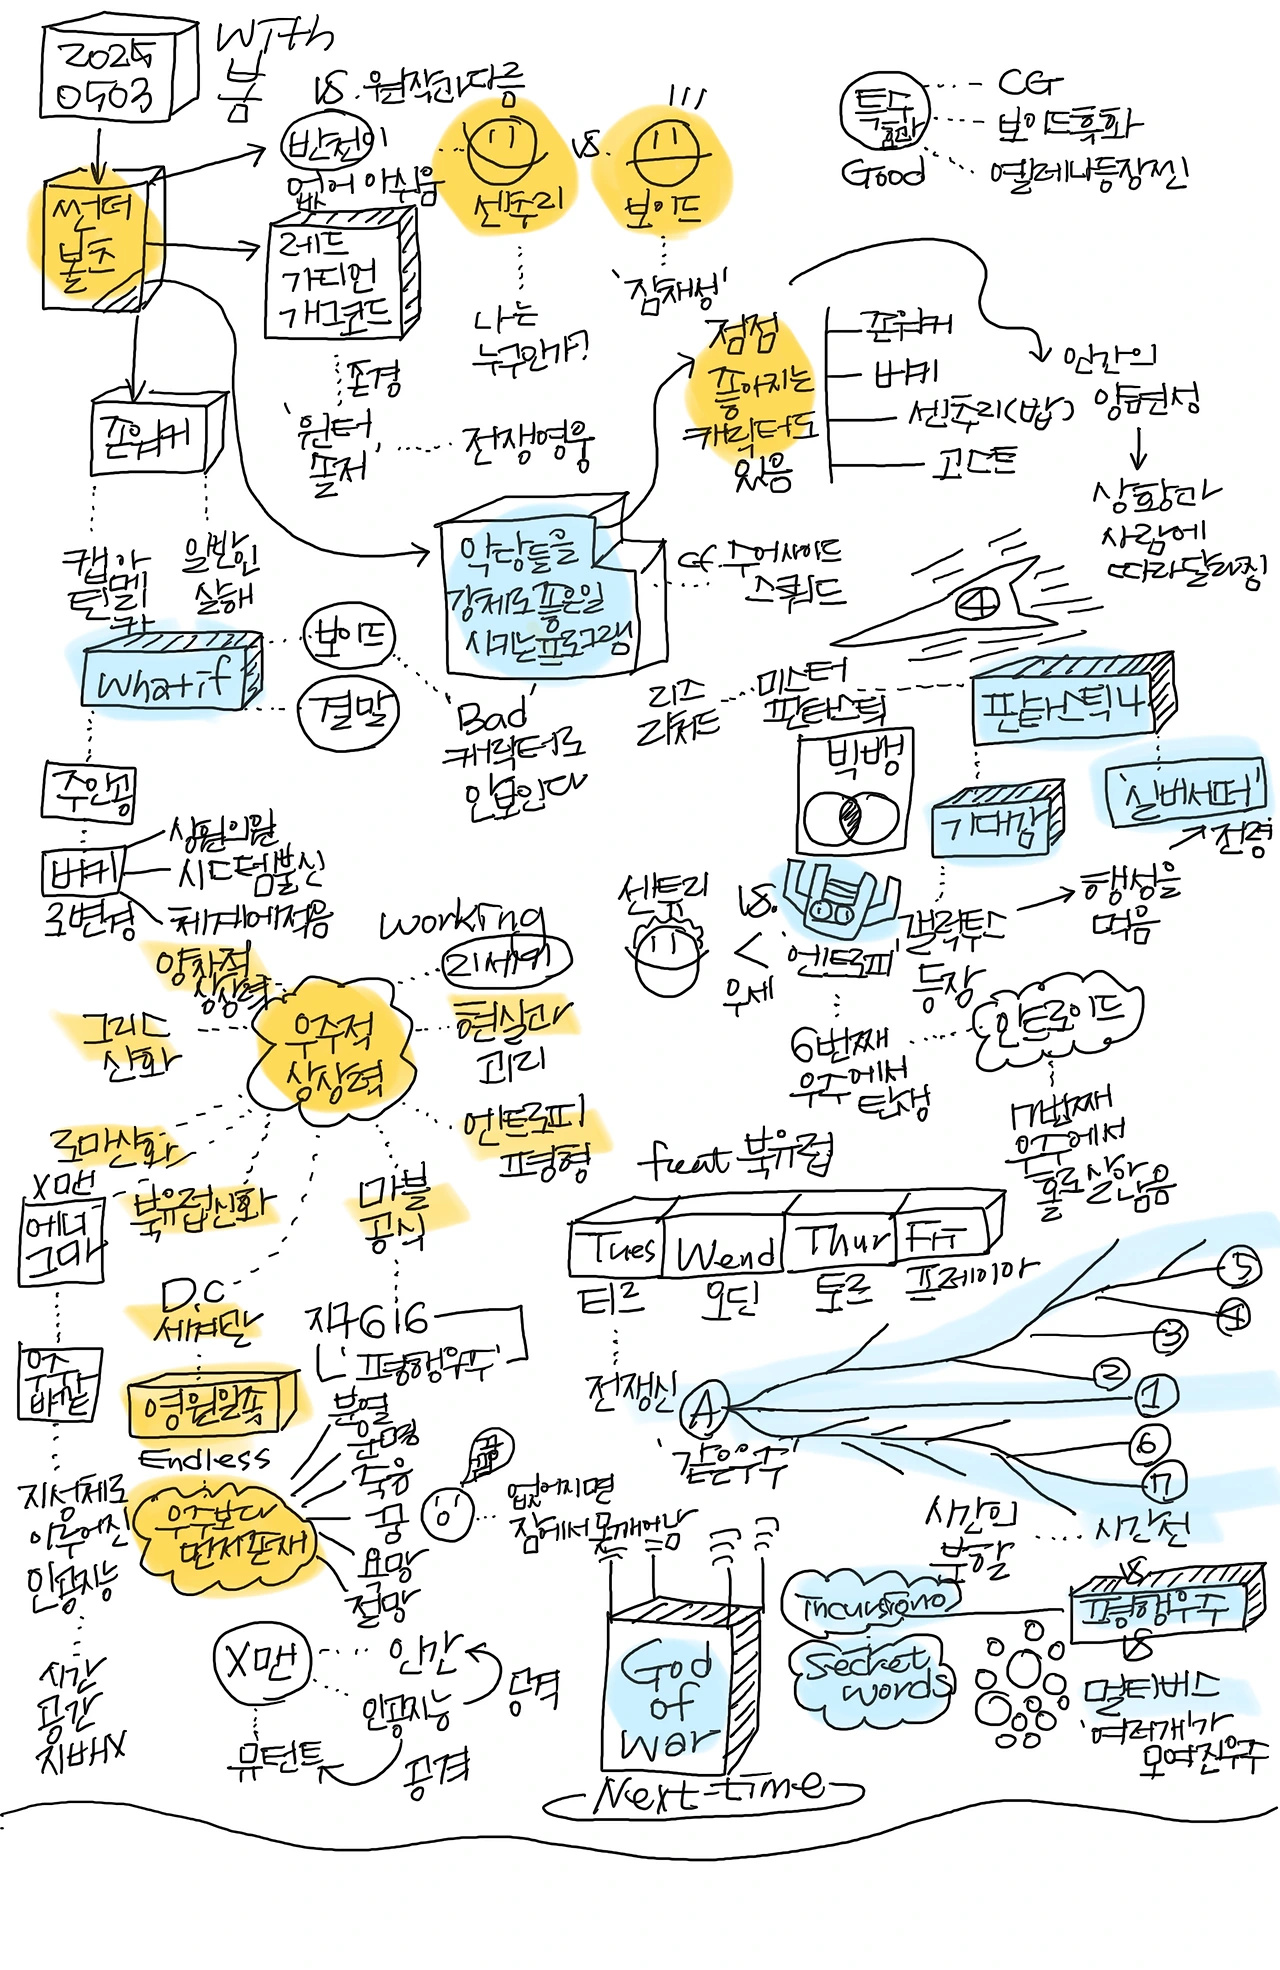 2025
0503
with
봄
vs. 원작과다름
반전이
없어 아쉬움
센추리
vs.
보이드
특수
효과
Good
CG
보이드흑화
옐레나등장씬
썬더
볼츠
레드
가디언
개그코드
나는
누구인가?
'잠재성'
존경
'윈터
솔저'
전쟁영웅
점점
좋아지는
캐릭터도
있음
존워커
버키
센추리(밥)
고스트
인간의
양면성
상황과
사람에
따라달라짐
존워커
캡아
틴메리
카
일반인
살해
악당들을
강제로좋은일
시키는프로그램
cf. 수어사이드
스쿼드
4
What if
보이드
결말
Bad
캐릭터로
안보인다
리즈
리처드
미스터
판타스틱
판타스틱4
빅뱅
기대감
'실버서퍼'
전령
주인공
버키
로변경
상원의원
시스템불신
체제에적응
센트리
vs.
<
우세
'엔트로피'
갤럭투스
등장
행성을
먹음
6번째
우주에서
탄생
안트로이드
7번째
우주에서
홀로살아남음
우주적
상상력
양자적
상상력
working
21세기
현실과
괴리
그리스
신화
로마신화
북유럽신화
엔트로피
평형
마블
공식
X맨
에너
그마
우주
바깥
지성체로
이루어진
인공지능
시간
공간
지배X
D.C
세계관
영원일족
Endless
우주보다
먼저존재
지구616
'평행우주'
분열
운명
죽음
꿈
욕망
절망
꿈
없어지면
잠에서못깨어남
feat 북유럽
Tues
Wend
Thur
Fri
티르
오딘
토르
프레이야
전쟁신
A
'같은우주'
5
4
3
2
1
6
7
시간의
분할
시간선
vs
평행우주
vs
멀티버스
'여러개'가
모여진우주
incursions
Secret
words
X맨
인간
인공지능
공격
뮤턴트
공격
God
of
war
Next-time